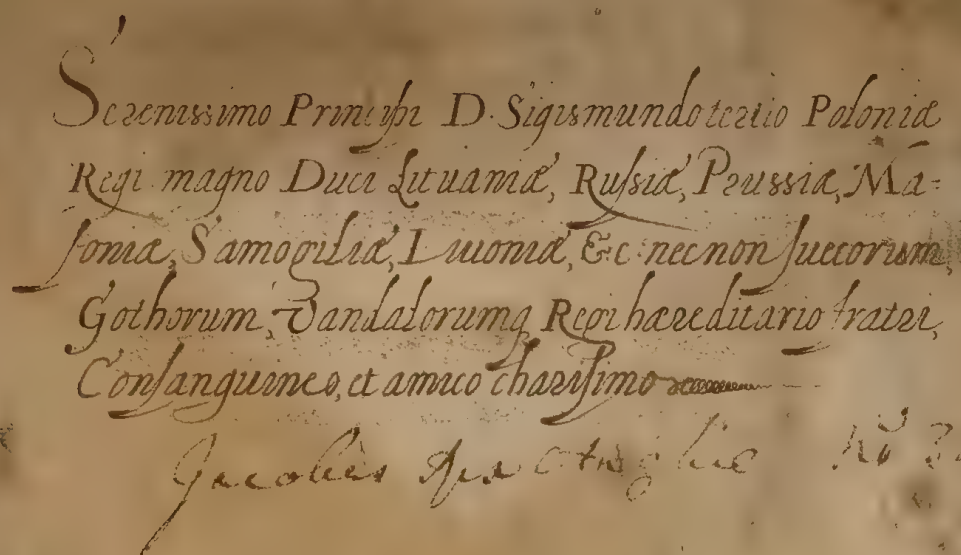 Serenissimo Principi D. Sigismundo tertio Poloniæ
Regi magno Duci Lituaniæ, Rusſiæ, Prussiæ, Ma=
ſoniæ, Samogitiæ, Liuoniæ, &c. necnon ſuecorum,
Gothorum, Vandalorumq Regi hæreditario fratri,
Conſanguineo, et amico chariſsimo
Jacobus